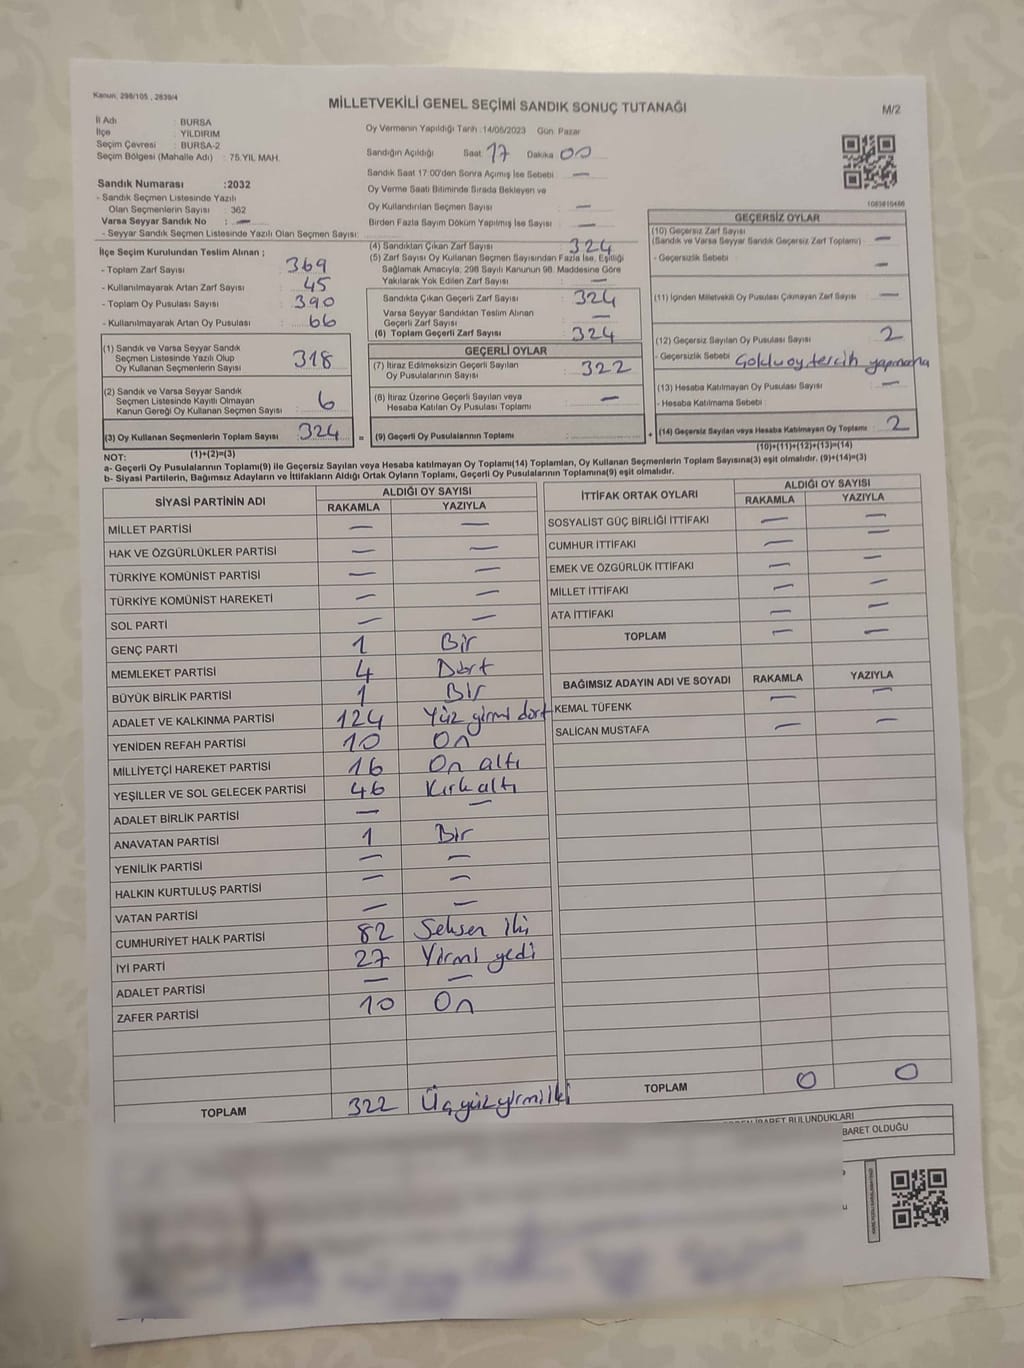 Kanun, 298/105 , 2839/4
MİLLETVEKİLİ GENEL SEÇİMİ SANDIK SONUÇ TUTANAĞI
M/2
İl Adı : BURSA
İlçe : YILDIRIM
Seçim Çevresi : BURSA-2
Seçim Bölgesi (Mahalle Adı) : 75.YIL MAH.
Sandık Numarası :2032
- Sandık Seçmen Listesinde Yazılı
Olan Seçmenlerin Sayısı : 362
Varsa Seyyar Sandık No : —
- Seyyar Sandık Seçmen Listesinde Yazılı Olan Seçmen Sayısı:
Oy Vermenin Yapıldığı Tarih :14/05/2023 Gün Pazar
Sandığın Açıldığı Saat 17 Dakika 00
Sandık Saat 17:00'den Sonra Açımış İse Sebebi : —
Oy Verme Saati Bitiminde Sırada Bekleyen ve
Oy Kullandırılan Seçmen Sayısı : —
Birden Fazla Sayım Döküm Yapılmış İse Sayısı : —
İlçe Seçim Kurulundan Teslim Alınan ;
- Toplam Zarf Sayısı : 369
- Kullanılmayarak Artan Zarf Sayısı : 45
- Toplam Oy Pusulası Sayısı : 390
- Kullanılmayarak Artan Oy Pusulası : 66
(1) Sandık ve Varsa Seyyar Sandık
Seçmen Listesinde Yazılı Olup
Oy Kullanan Seçmenlerin Sayısı : 318
(2) Sandık ve Varsa Seyyar Sandık
Seçmen Listesinde Kayıtlı Olmayan
Kanun Gereği Oy Kullanan Seçmen Sayısı : 6
(3) Oy Kullanan Seçmenlerin Toplam Sayısı : 324
(4) Sandıktan Çıkan Zarf Sayısı : 324
(5) Zarf Sayısı Oy Kullanan Seçmen Sayısından Fazla İse, Eşitliği
Sağlamak Amacıyla; 298 Sayılı Kanunun 98. Maddesine Göre
Yakılarak Yok Edilen Zarf Sayısı : —
Sandıkta Çıkan Geçerli Zarf Sayısı : 324
Varsa Seyyar Sandıktan Teslim Alınan
Geçerli Zarf Sayısı : —
(6) Toplam Geçerli Zarf Sayısı : 324
GEÇERLİ OYLAR
(7) İtiraz Edilmeksizin Geçerli Sayılan
Oy Pusulalarının Sayısı : 322
(8) İtiraz Üzerine Geçerli Sayılan veya
Hesaba Katılan Oy Pusulası Toplamı : —
= (9) Geçerli Oy Pusulalarının Toplamı :
1083810466
GEÇERSİZ OYLAR
(10) Geçersiz Zarf Sayısı : —
(Sandık ve Varsa Seyyar Sandık Geçersiz Zarf Toplamı)
- Geçersizlik Sebebi : —
(11) İçinden Milletvekili Oy Pusulası Çıkmayan Zarf Sayısı : —
(12) Geçersiz Sayılan Oy Pusulası Sayısı : 2
- Geçersizlik Sebebi Çoklu oy tercih yapmama
(13) Hesaba Katılmayan Oy Pusulası Sayısı : —
- Hesaba Katılmama Sebebi :
+ (14) Geçersiz Sayılan veya Hesaba Katılmayan Oy Toplamı : 2
(1)+(2)=(3)
(10)+(11)+(12)+(13)=(14)
NOT:
a- Geçerli Oy Pusulalarının Toplamı(9) ile Geçersiz Sayılan veya Hesaba katılmayan Oy Toplamı(14) Toplamları, Oy Kullanan Seçmenlerin Toplam Sayısına(3) eşit olmalıdır. (9)+(14)=(3)
b- Siyasi Partilerin, Bağımsız Adayların ve İttifakların Aldığı Ortak Oyların Toplamı, Geçerli Oy Pusulalarının Toplamına(9) eşit olmalıdır.
SİYASİ PARTİNİN ADI ALDIĞI OY SAYISI
RAKAMLA YAZIYLA
MİLLET PARTİSİ — —
HAK VE ÖZGÜRLÜKLER PARTİSİ — —
TÜRKİYE KOMÜNİST PARTİSİ — —
TÜRKİYE KOMÜNİST HAREKETİ — —
SOL PARTİ — —
GENÇ PARTİ 1 Bir
MEMLEKET PARTİSİ 4 Dört
BÜYÜK BİRLİK PARTİSİ 1 Bir
ADALET VE KALKINMA PARTİSİ 124 Yüz yirmi dört
YENİDEN REFAH PARTİSİ 10 On
MİLLİYETÇİ HAREKET PARTİSİ 16 On altı
YEŞİLLER VE SOL GELECEK PARTİSİ 46 Kırk altı
ADALET BİRLİK PARTİSİ — —
ANAVATAN PARTİSİ 1 Bir
YENİLİK PARTİSİ — —
HALKIN KURTULUŞ PARTİSİ — —
VATAN PARTİSİ — —
CUMHURİYET HALK PARTİSİ 82 Seksen iki
İYİ PARTİ 27 Yirmi yedi
ADALET PARTİSİ — —
ZAFER PARTİSİ 10 On
TOPLAM 322 Üçyüzyirmiiki
İTTİFAK ORTAK OYLARI ALDIĞI OY SAYISI
RAKAMLA YAZIYLA
SOSYALİST GÜÇ BİRLİĞİ İTTİFAKI — —
CUMHUR İTTİFAKI — —
EMEK VE ÖZGÜRLÜK İTTİFAKI — —
MİLLET İTTİFAKI — —
ATA İTTİFAKI — —
TOPLAM — —
BAĞIMSIZ ADAYIN ADI VE SOYADI RAKAMLA YAZIYLA
KEMAL TÜFENK — —
SALİCAN MUSTAFA — —
TOPLAM 0 0
İBARET BULUNDUKLARI
BARET OLDUĞU